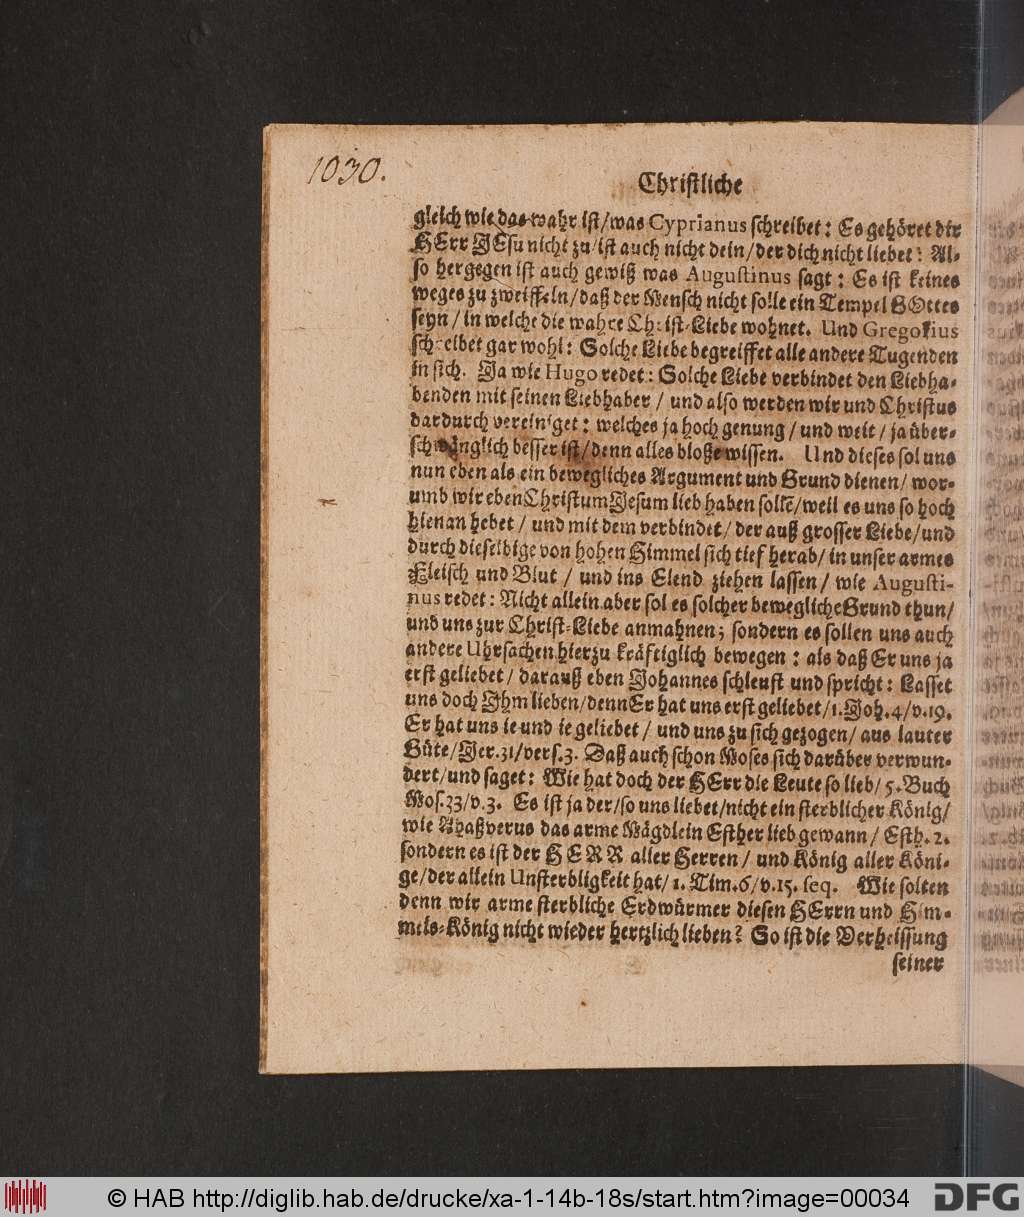 1030.
Christliche
gleich wie das wahr ist/was Cyprianus schreibet: Es gehöret dir
HErr JEsu nicht zu/ist auch nicht dein/der dich nicht liebet: Al-
so hergegen ist auch gewiß was Augustinus sagt: Es ist keines
weges zu zweiffeln/daß der Mensch nicht solle ein Tempel GOttes
seyn/in welche die wahre Christ-Liebe wohnet. Und Gregorius
schreibet gar wohl: Solche Liebe begreiffet alle andere Tugenden
in sich. Ja wie Hugo redet: Solche Liebe verbindet den Liebha-
benden mit seinen Liebhaber/und also werden wir und Christus
dardurch vereiniget: welches ja hoch genung/und weit/ja über-
schwänglich besser ist/denn alles bloße wissen. Und dieses sol uns
nun eben als ein bewegliches Argument und Grund dienen/wor-
umb wir eben Christum Jesum lieb haben sollē/weil es uns so hoch
hienan hebet/und mit dem verbindet/der auß grosser Liebe/und
durch dieselbige von hohen Himmel sich tief herab/in unser armes
Fleisch und Blut/und ins Elend ziehen lassen/wie Augusti-
nus redet: Nicht allein aber sol es solcher bewegliche Grund thun/
und uns zur Christ-Liebe anmahnen; sondern es sollen uns auch
andere Uhrsachen hierzu kräftiglich bewegen: als daß Er uns ja
erst geliebet/darauß eben Johannes schleust und spricht: Lasset
uns doch Jhm lieben/denn Er hat uns erst geliebet/1. Joh. 4/v. 19.
Er hat uns ie und ie geliebet/und uns zu sich gezogen/aus lauter
Güte/Jer. 31/vers. 3. Daß auch schon Moses sich darüber verwun-
dert/und saget: Wie hat doch der HErr die Leute so lieb/5. Buch
Mos. 33/v. 3. Es ist ja der/so uns liebet/nicht ein sterblicher König/
wie Ahaßverus das arme Mägdlein Esther lieb gewann/Esth. 2.
sondern es ist der HERR aller Herren/und König aller Köni-
ge/der allein Unsterbligkeit hat/1. Tim. 6/v. 15. seq. Wie solten
denn wir arme sterbliche Erdwürmer diesen HErrn und Him-
mels-König nicht wieder hertzlich lieben? So ist die Verheissung
seiner
© HAB http://diglib.hab.de/drucke/xa-1-14b-18s/start.htm?image=00034
DFG